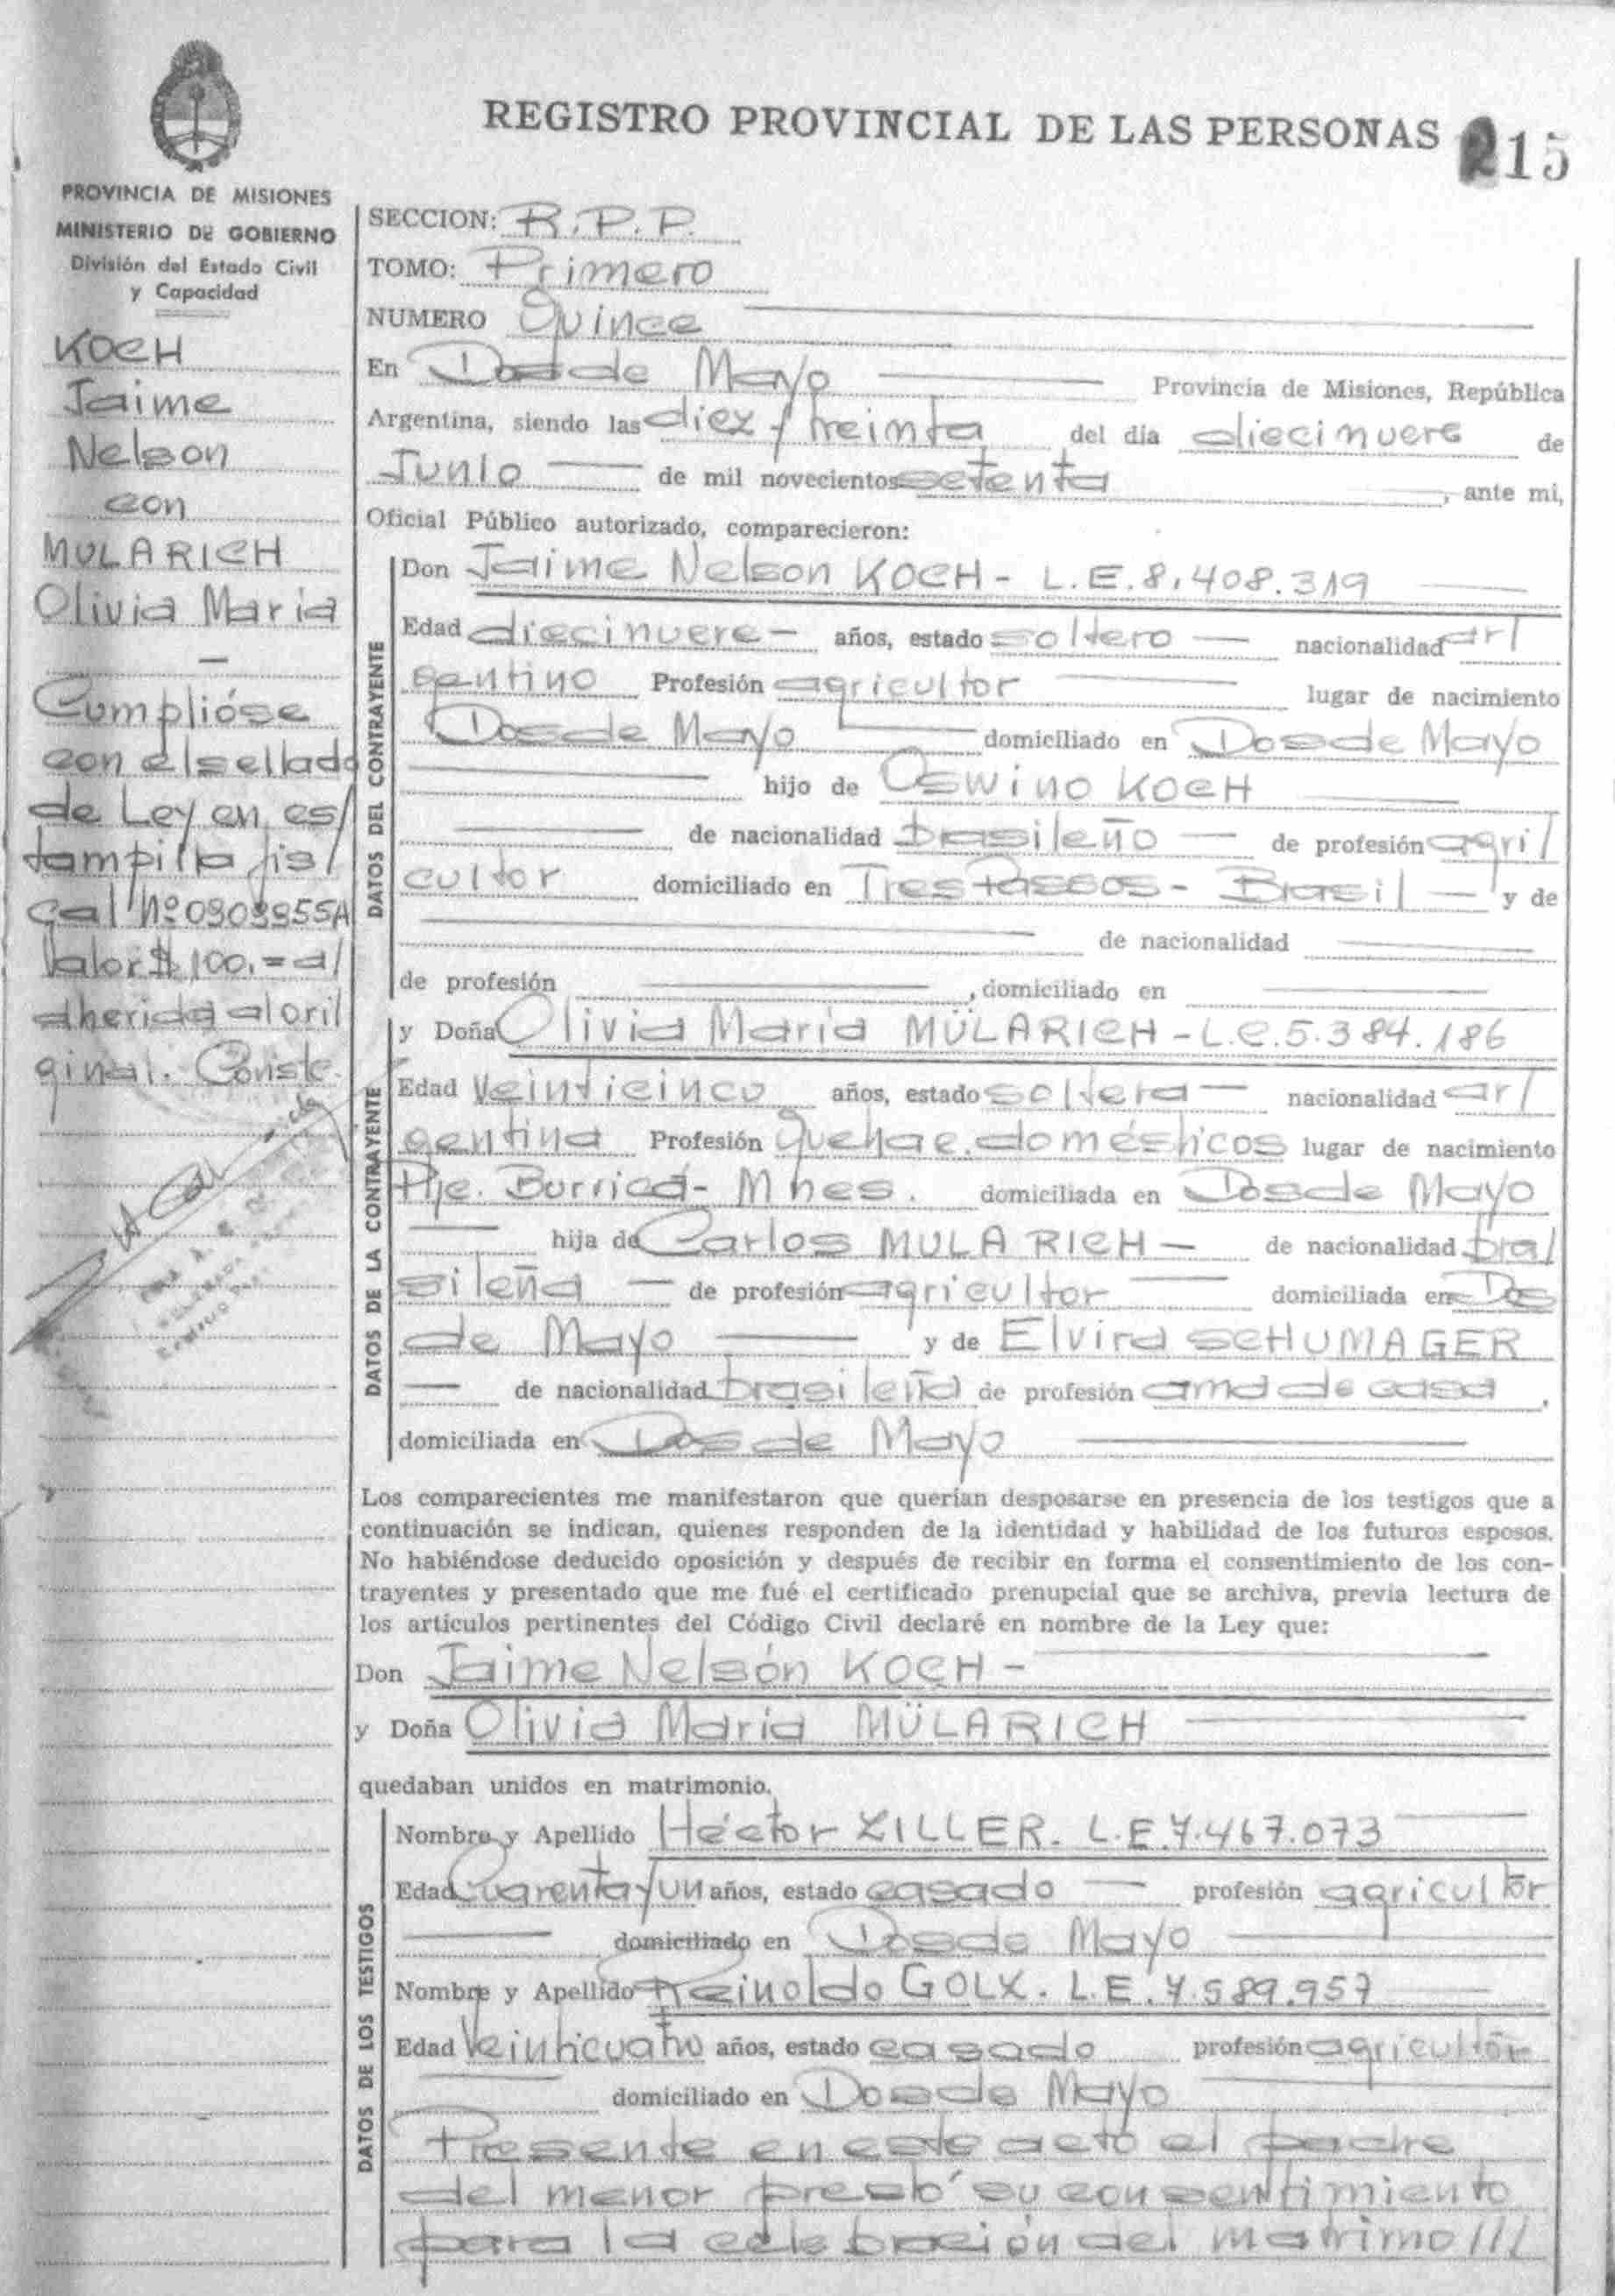 REGISTRO PROVINCIAL DE LAS PERSONAS 215
PROVINCIA DE MISIONES
MINISTERIO DE GOBIERNO
División del Estado Civil
y Capacidad
KOCH
Jaime
Nelson
con
MULARICH
Olivia Maria
—
Cumplióse
con el sellado
de Ley en es/
tampilla fis/
cal Nº 0909955A
Valor $ 100.= a/
dherida al ori/
ginal. Conste.
SECCION: R.P.P.
TOMO: Primero
NUMERO Quince
En Dos de Mayo Provincia de Misiones, República
Argentina, siendo las diez y treinta del día diecinueve de
Junio de mil novecientos setenta, ante mi,
Oficial Público autorizado, comparecieron:
DATOS DEL CONTRAYENTE
Don Jaime Nelson KOCH - L.E. 8.408.319
Edad diecinueve - años, estado soltero — nacionalidad ar/
gentino Profesión agricultor lugar de nacimiento
Dos de Mayo domiciliado en Dos de Mayo
hijo de Oswino KOCH
de nacionalidad brasileño — de profesión agri/
cultor domiciliado en Tres Passos - Brasil — y de
de nacionalidad
de profesión , domiciliado en
DATOS DE LA CONTRAYENTE
y Doña Olivia Maria MÜLARICH - L.C. 5.384.186
Edad Veinticinco años, estado soltera — nacionalidad ar/
gentina Profesión Quehac. domésticos lugar de nacimiento
Pje. Burricá - Mnes. domiciliada en Dos de Mayo
hija de Carlos MULARICH — de nacionalidad bra/
sileña — de profesión agricultor domiciliada en Dos
de Mayo y de Elvira SCHUMAGER
de nacionalidad brasileña de profesión ama de casa,
domiciliada en Dos de Mayo
Los comparecientes me manifestaron que querían desposarse en presencia de los testigos que a
continuación se indican, quienes responden de la identidad y habilidad de los futuros esposos.
No habiéndose deducido oposición y después de recibir en forma el consentimiento de los con-
trayentes y presentado que me fué el certificado prenupcial que se archiva, previa lectura de
los artículos pertinentes del Código Civil declaré en nombre de la Ley que:
Don Jaime Nelsón KOCH -
y Doña Olivia Maria MÜLARICH
quedaban unidos en matrimonio.
DATOS DE LOS TESTIGOS
Nombre y Apellido Héctor ZILLER. L.E. 7.467.073
Edad Cuarenta y un años, estado casado — profesión agricultor
domiciliado en Dos de Mayo
Nombre y Apellido Reinoldo GOLZ. L.E. 7.589.957
Edad Veinticuatro años, estado casado profesión agricultor
domiciliado en Dos de Mayo
Presente en este acto el padre
del menor prestó su consentimiento
para la celebración del matrimo///